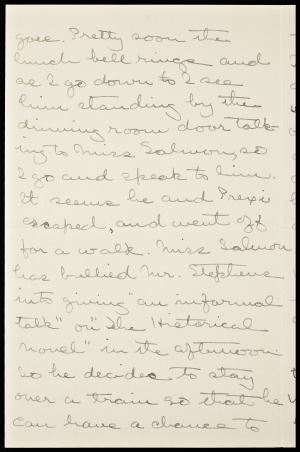 goes. Pretty soon the
lunch bell rings and
as I go down to I see
him standing by the
dinning room door talk
ing to Miss Salmon, so
I go and speak to him.
It seems he and Prexie
escaped, and went off
for a walk. Miss Salmon
has bullied Mr. Stephens
into giving "an informal
talk" on "the Historical
novel" in the afternoon.
So he decides to stay
over a train so that he
can have a chance to